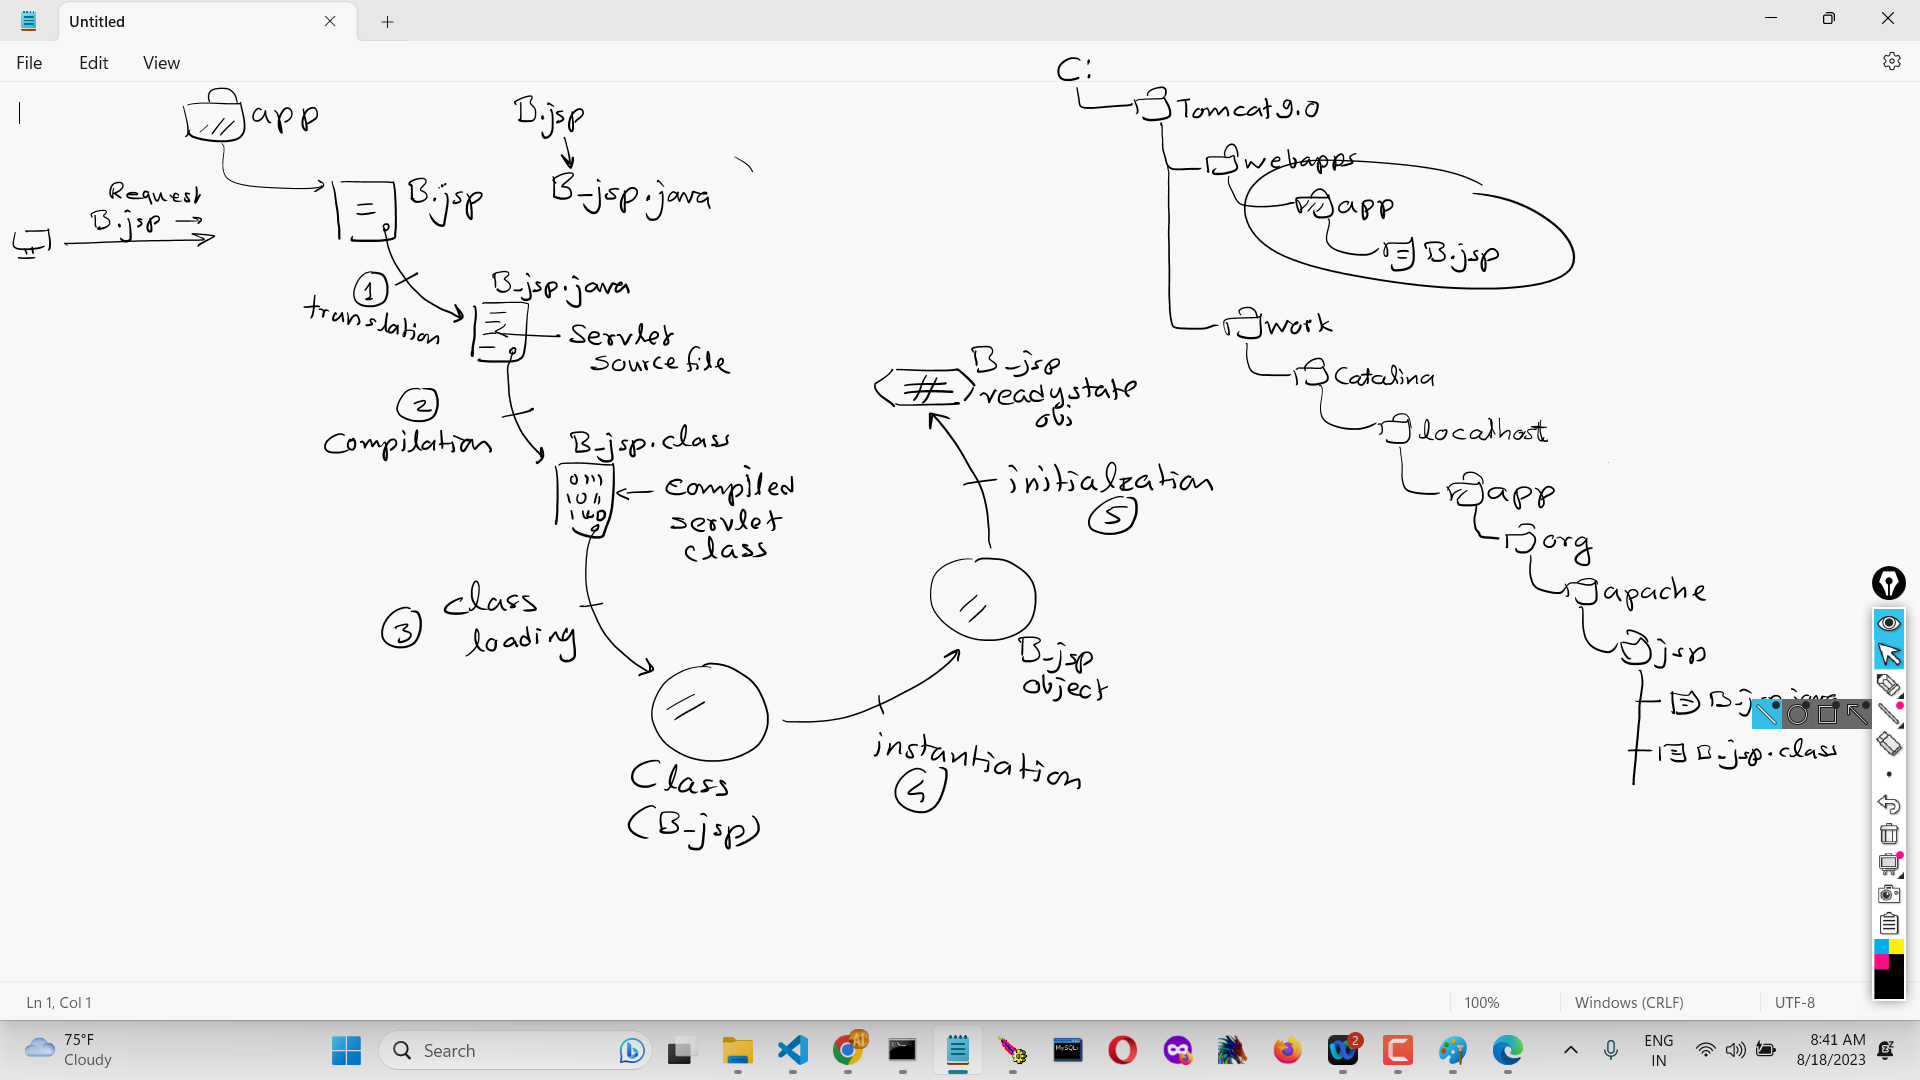 Untitled
File Edit View
app
B.jsp
B_jsp.java
Request
B.jsp
B.jsp
1
translation
B_jsp.java
Servlet
source file
2
Compilation
B_jsp.class
0111
compiled
servlet
class
3
class
loading
Class
(B_jsp)
instantiation
4
B_jsp
object
initialzation
5
B_jsp
ready state
obj
C:
Tomcat 9.0
webapps
app
B.jsp
work
Catalina
localhost
app
org
apache
jsp
B_jsp.java
B_jsp.class
Ln 1, Col 1
100%
Windows (CRLF)
UTF-8
75°F
Cloudy
Search
MySQL
2
ENG
IN
8:41 AM
8/18/2023